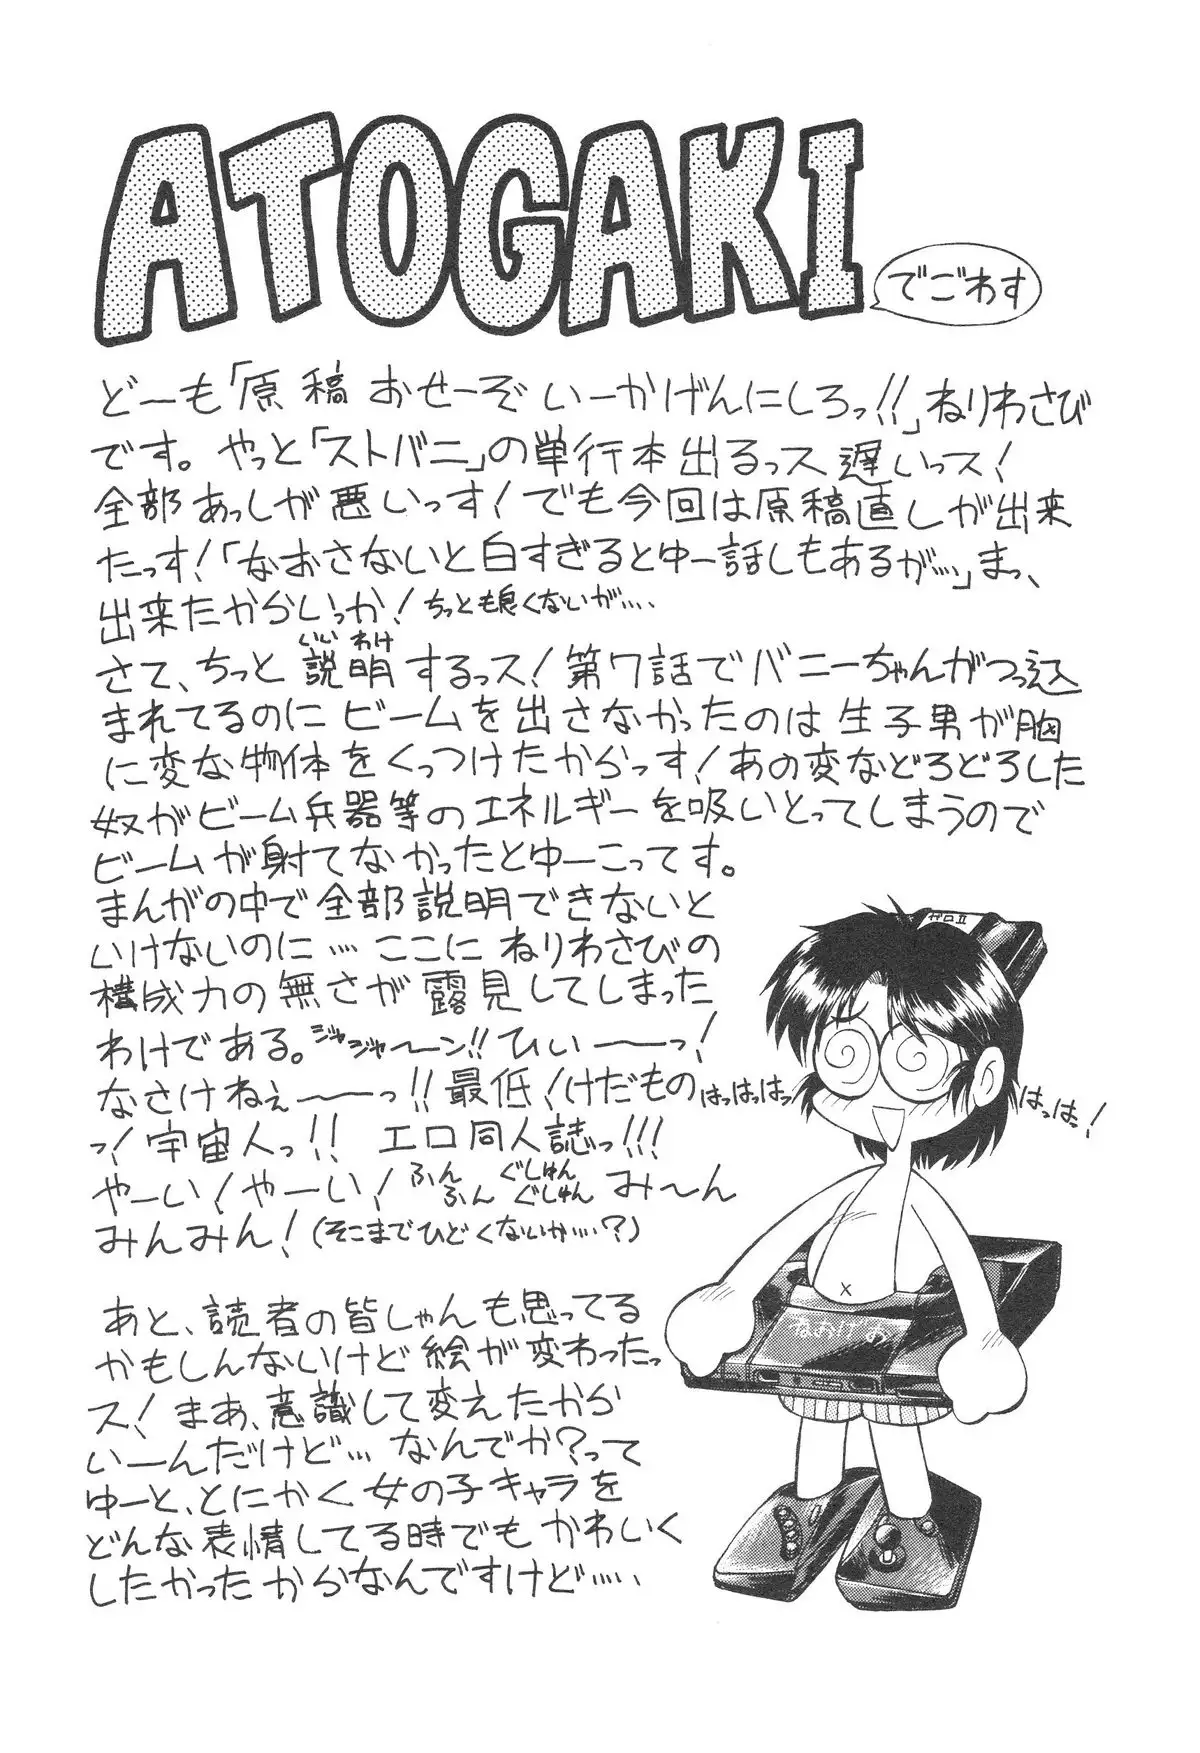 ATOGAKI
でごわす
どーも「原稿おせーぞいーかげんにしろっ!!」ねりわさび
です。やっと「ストバニ」の単行本出るっス遅いっス!
全部あっしが悪いっす!でも今回は原稿直しが出来
たっす!「なおさないと白すぎるとゆー話しもあるが…」まっ、
出来たからいっか!ちっとも良くないが….
さて、ちっと説明するっス!第7話でバニーちゃんがつっ込
いいわけ
まれてるのにビームを出さなかったのは生子男が胸
に変な物体をくっつけたからっす!あの変などろどろした
奴がビーム兵器等のエネルギーを吸いとってしまうので
ビームが射てなかったとゆーこってす。
まんがの中で全部説明できないと
いけないのに…ここにねりわさびの
構成力の無さが露見してしまった
わけである。ジャジャ〜ーン!!ひぃー〜ーっ!
なさけねぇー〜ーっ!!最低!けだもの
っ!宇宙人っ!!エロ同人誌っ!!!
やーい!やーい!ふんふん ぐしゅんぐしゅん み〜ん
みんみん!(そこまでひどくないか….?)
あと、読者の皆しゃんも思ってる
かもしんないけど絵が変わったっ
ス!まあ、意識して変えたから
いーんだけど…なんでか?って
ゆーと、とにかく女の子キャラを
どんな表情してる時でもかわいく
したかったからなんですけど…..
ガロII
はっはっはっ
はっはっ!
ねおげお